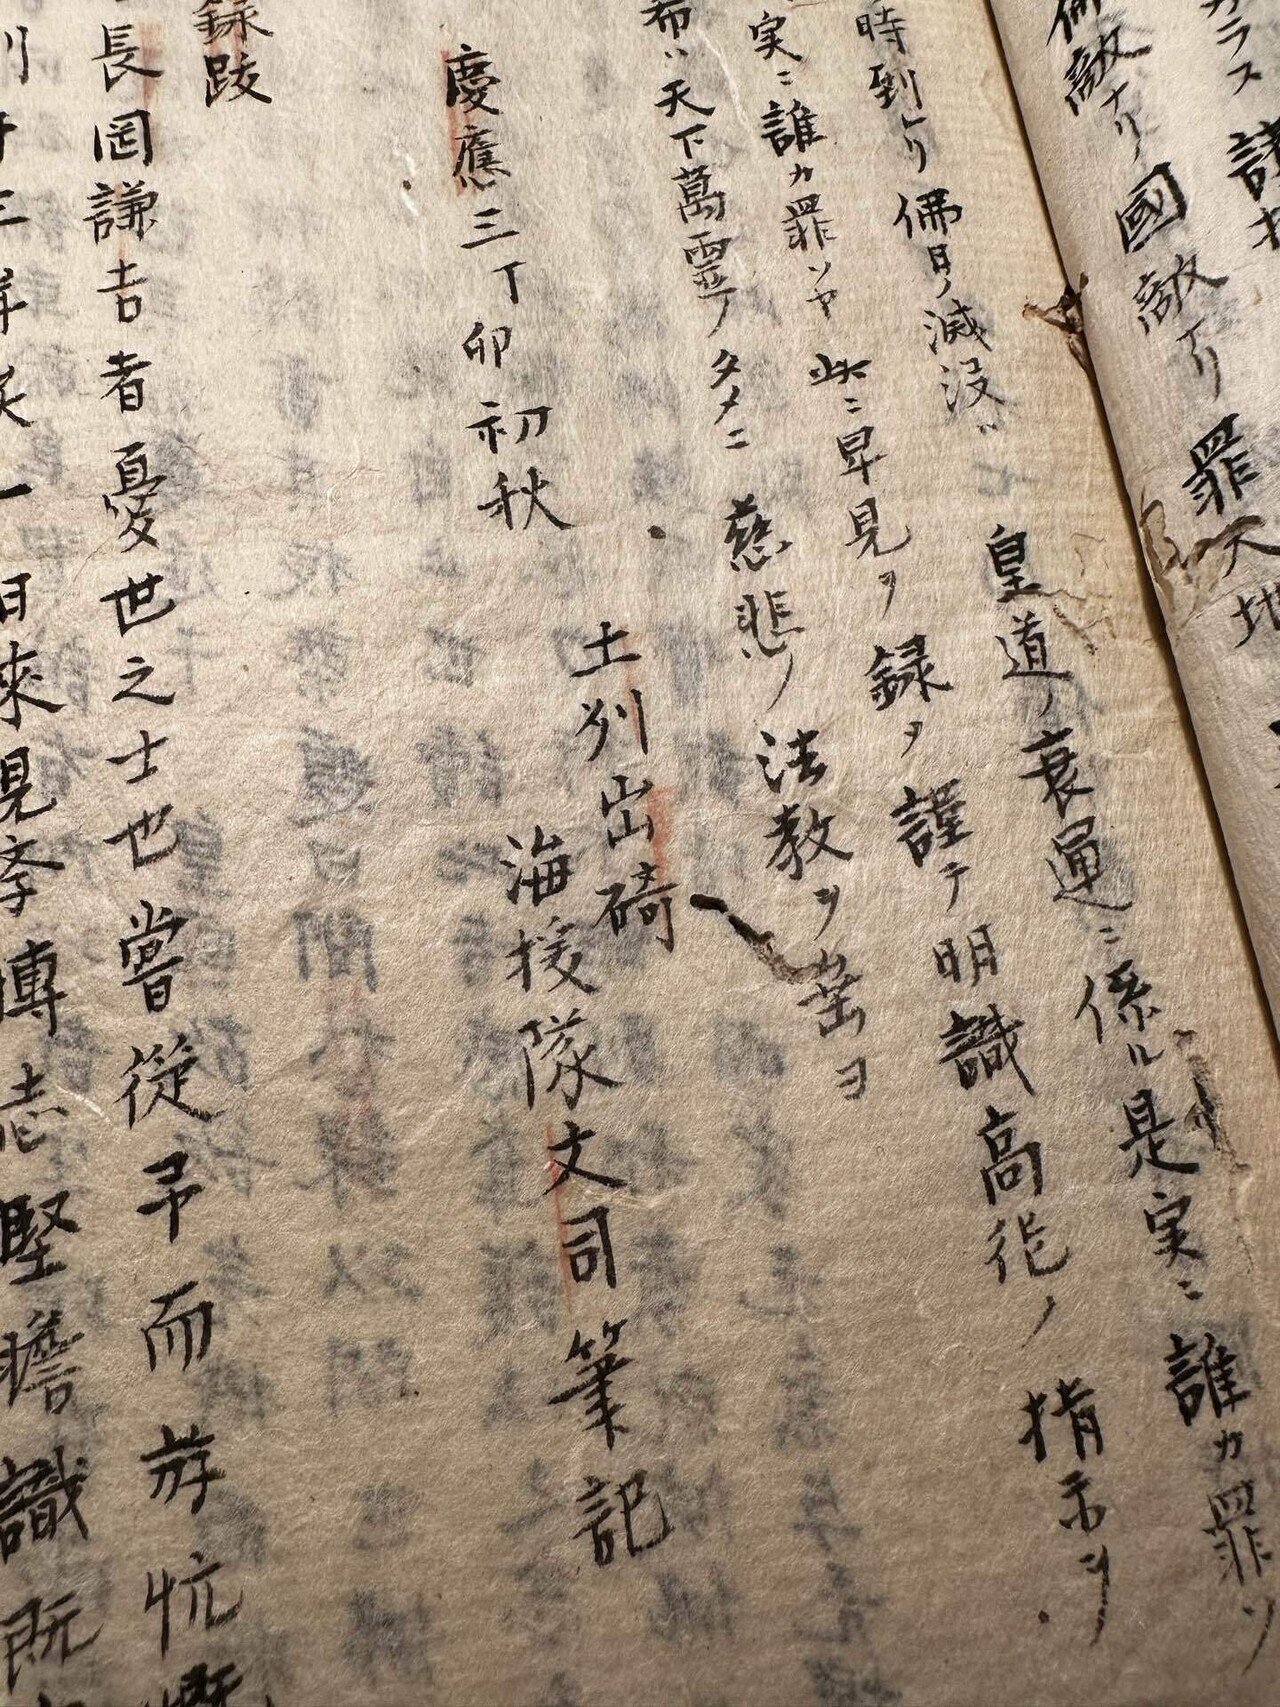 カラス 諸
佛敵ナリ 國敵ナリ 罪天地
皇道ノ衰運ニ係ル是実ニ誰カ罪ソ
時到レリ佛日ノ滅没
実ニ誰カ罪ソヤ 此ニ卑見ヲ録ヲ謹テ明識高徳ノ指示ヲ
布ハ天下萬霊ノタメニ慈悲ノ法教ヲ
慶應三丁卯初秋
土州出碕
海援隊文司筆記
録跋
長岡謙吉者憂世之士也嘗從予而游忼慨
一日來見孝博志堅瞻識既